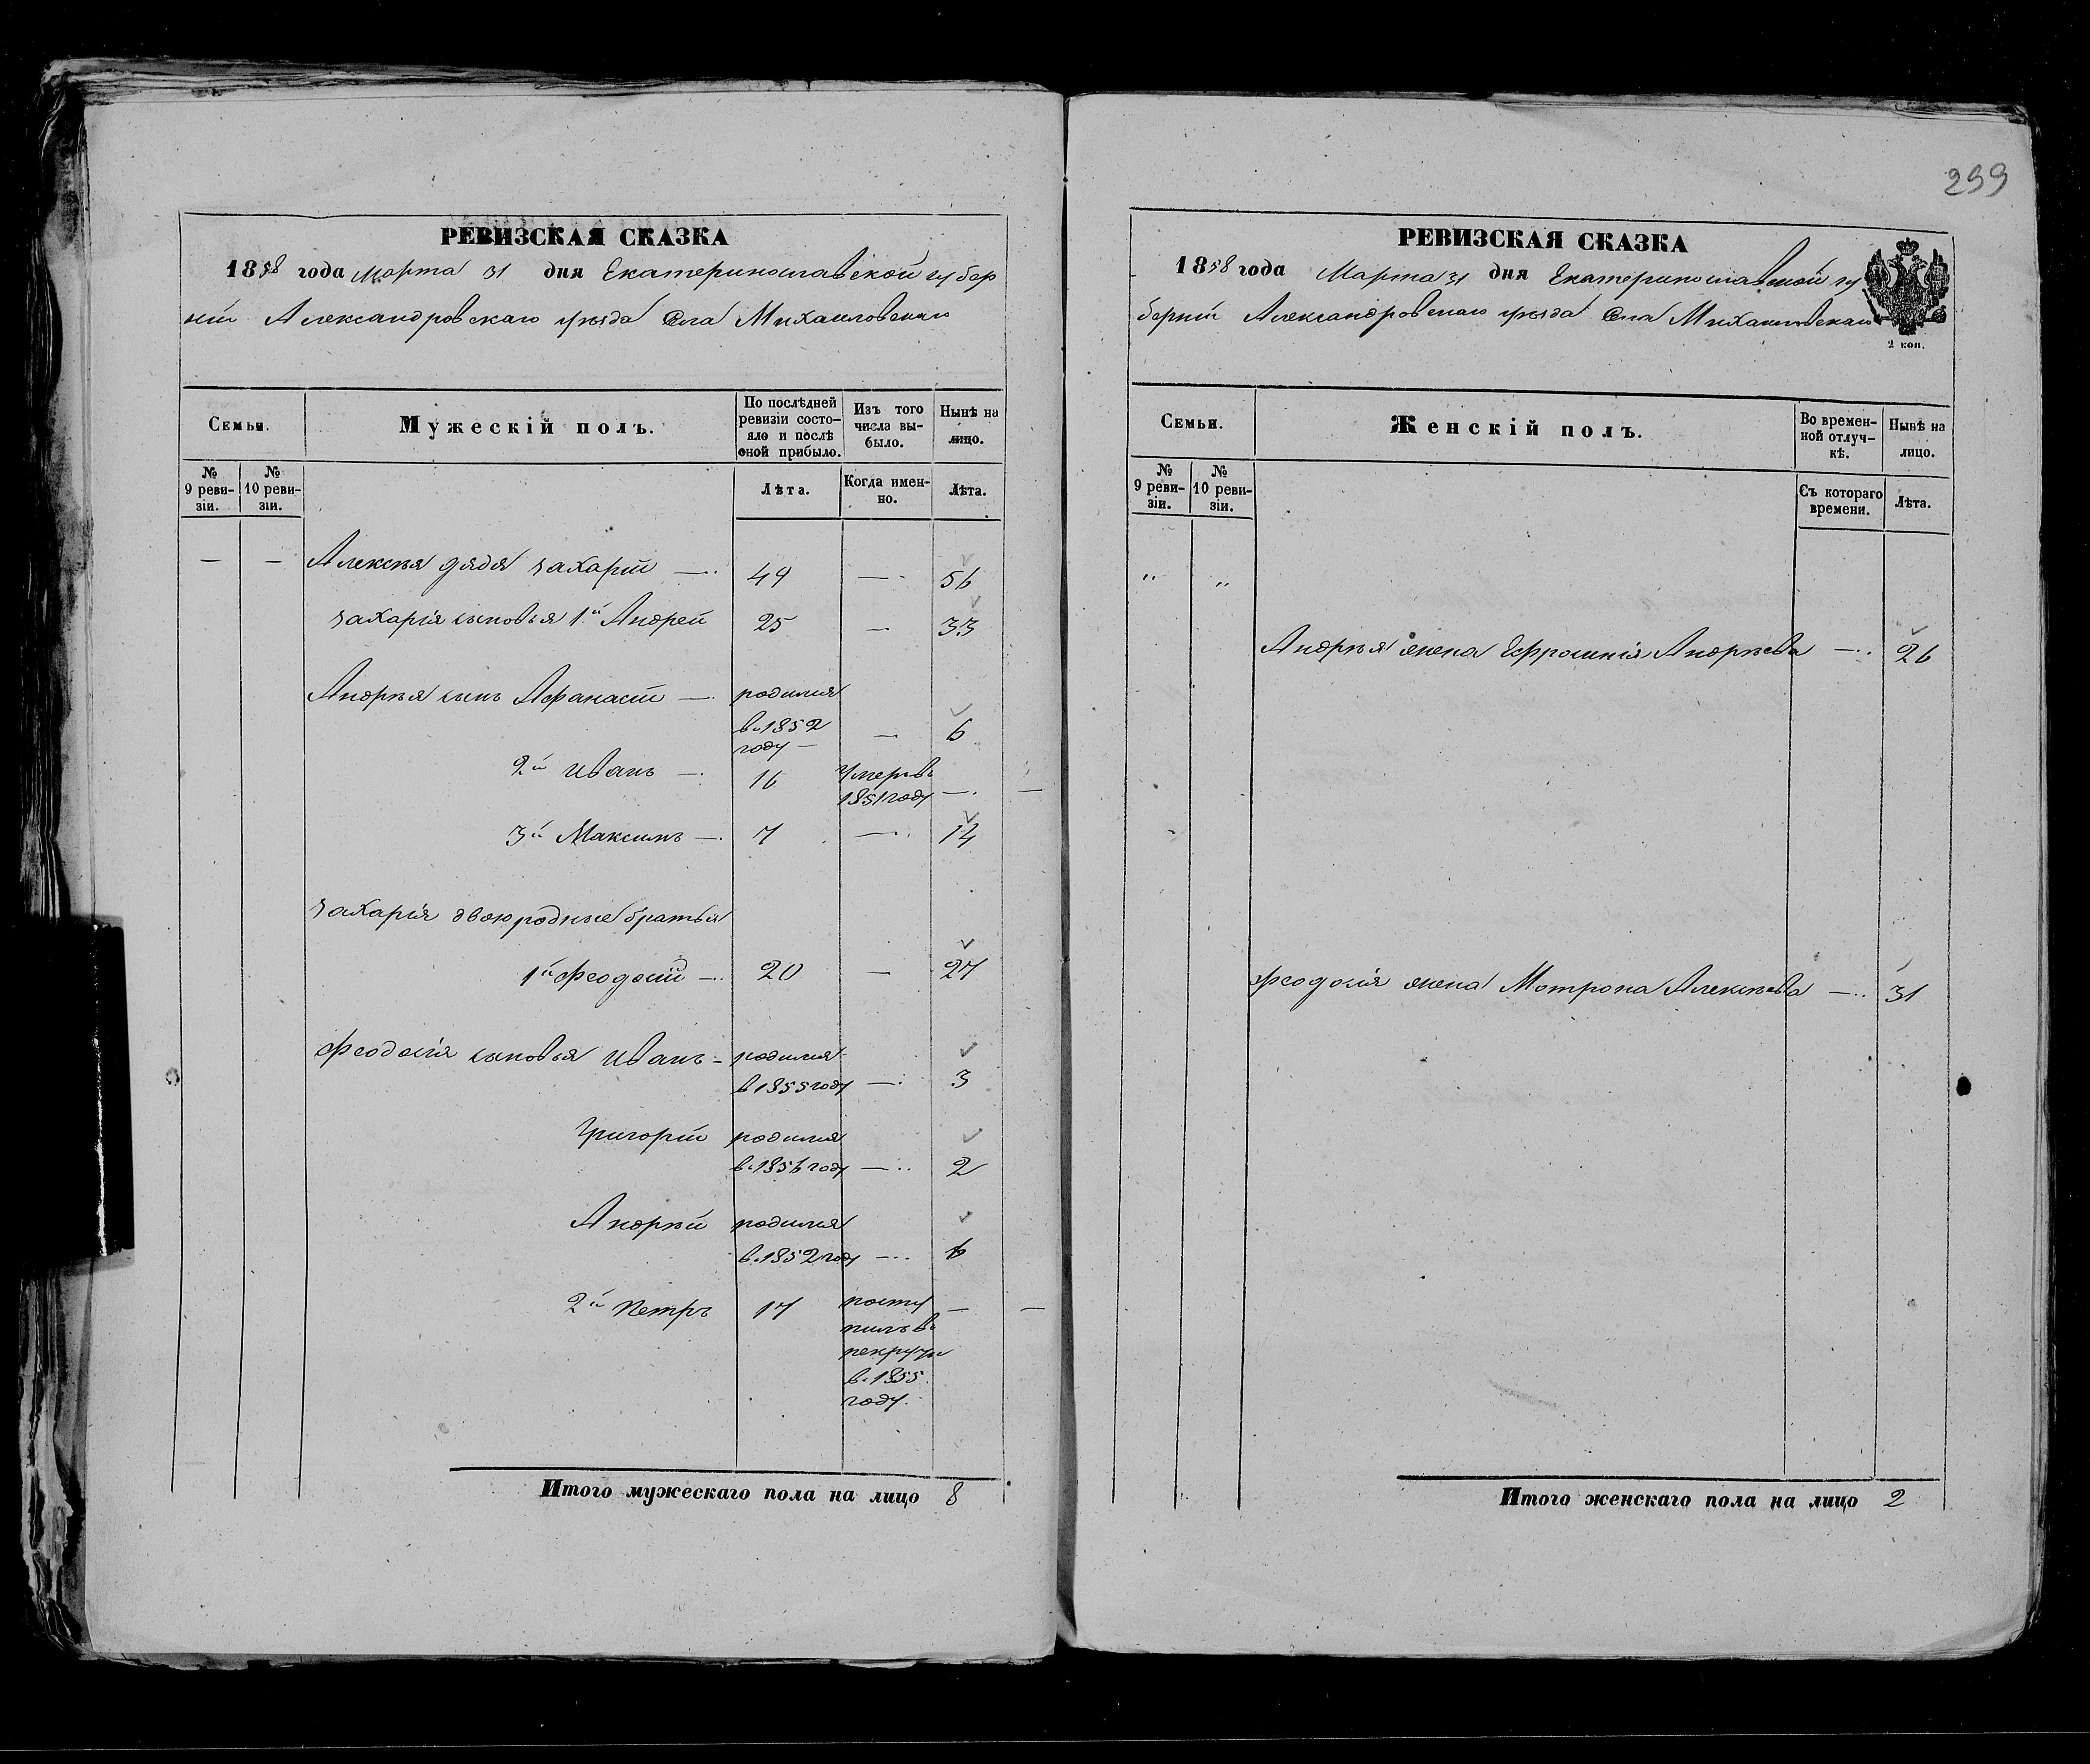 299
РЕВИЗСКАЯ СКАЗКА
1858 года Марта 31 дня Екатеринославской губер
ніи Александровскаго уѣзда Села Михайловскаго
Семьи.
Мужескій полъ.
По послѣдней ревизіи состояло и послѣ оной прибыло.
Изъ того числа выбыло.
Нынѣ на лицо.
№ 9 ревизіи.
№ 10 ревизіи.
Лѣта.
Когда именно.
Лѣта.
— — Алексѣя дядя Захарій — 49 — 56
Захарія сыновья 1й Андрей 25 — 33
Андрѣя сынъ Афанасій — родился
в 1852 — 6
году —
2й Иванъ — 16 Умеръ в
1851 году — —
3й Максимъ — 7 — 14
Захарія двоюродные братья
1й Феодосій — 20 — 27
Феодосія сыновья Иванъ — родился
в 1855 году — 3
Григорій родился
в 1856 году — 2
Андрѣй родился
в 1852 году — 6
2й Петръ 17 посту — —
пилъ в
рекруты
в 1855
году.
Итого мужескаго пола на лицо 8
РЕВИЗСКАЯ СКАЗКА
1858 года Марта 31 дня Екатеринославской гу
берніи Александровскаго уѣзда Села Михайловскаго
2 коп.
Семьи.
Женскій полъ.
Во временной отлучкѣ.
Нынѣ на лицо.
№ 9 ревизіи.
№ 10 ревизіи.
Съ котораго времени.
Лѣта.
" "
Андрѣя жена Ефросинія Андрѣева — 26
Феодосія жена Мотрона Алексѣева — 31
Итого женскаго пола на лицо 2